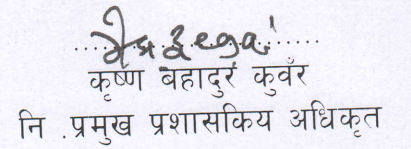 कृष्ण बहादुर कुवँर
नि .प्रमुख प्रशासकिय अधिकृत